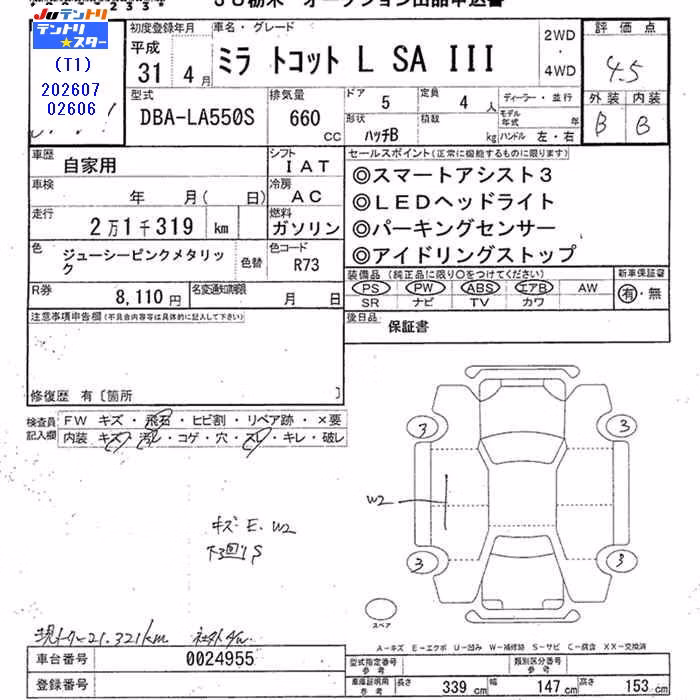 JU栃木 オークション出品申込書
JUテントリ
テントリ★スター
(T1)
202607
02606
初度登録年月
平成
31 4 月
車名・グレード
ミラ トコット L SA III
2WD
・
4WD
評価点
4.5
外装 内装
B B
型式
DBA-LA550S
排気量
660 CC
ドア 5
定員 4 人
形状 ハッチB
積載 kg
ディーラー・並行
モデル年式 年
ハンドル 左・右
車歴 自家用
シフト IAT
車検 年 月( 日)
冷房 AC
走行 2万1千319 km
燃料 ガソリン
色 ジューシーピンクメタリック
色替
色コード R73
R券 8,110 円
名変通知期限 月 日
セールスポイント(正常に機能するものに限ります)
◎スマートアシスト3
◎LEDヘッドライト
◎パーキングセンサー
◎アイドリングストップ
装備品(純正品に限り○をつけてください)
PS PW ABS エアB AW
SR ナビ TV カワ
新車保証書
有・無
後日品 保証書
注意事項申告欄(不具合内容等は具体的に記入して下さい)
修復歴 有〔箇所 〕
検査員記入欄
FW キズ・飛石・ヒビ割・リペア跡・×要
内装 キズ・汚レ・コゲ・穴・スレ・キレ・破レ
3 3
W2
3 3
スペア
キズ E. W2
下回りS
現メーター21,321km
A-キズ E-エクボ U-凹み W-補修跡 S-サビ C-腐食 XX-交換済
車台番号 0024955
登録番号
型式指定番号 参考
類別区分番号 参考
車庫証明用 参考
長さ 339 cm 幅 147 cm 高さ 153 cm